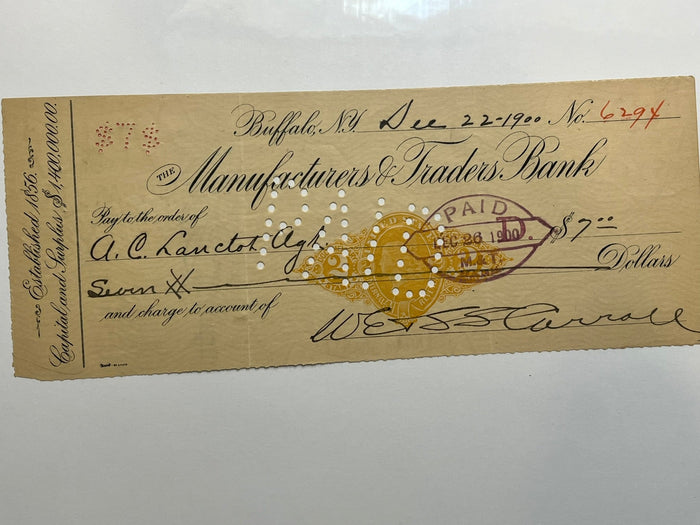 Established 1856.
Capital and Surplus $1,400,000.00.
$7$
Buffalo, N.Y. Dec 22-1900 No. 6294
THE Manufacturers & Traders Bank
Pay to the order of
A. C. Lanctot Agt. $7.00
Seven XX Dollars
and charge to account of
W E & S S Carroll
PAID
D.
DEC 26 1900
M & T
BANK